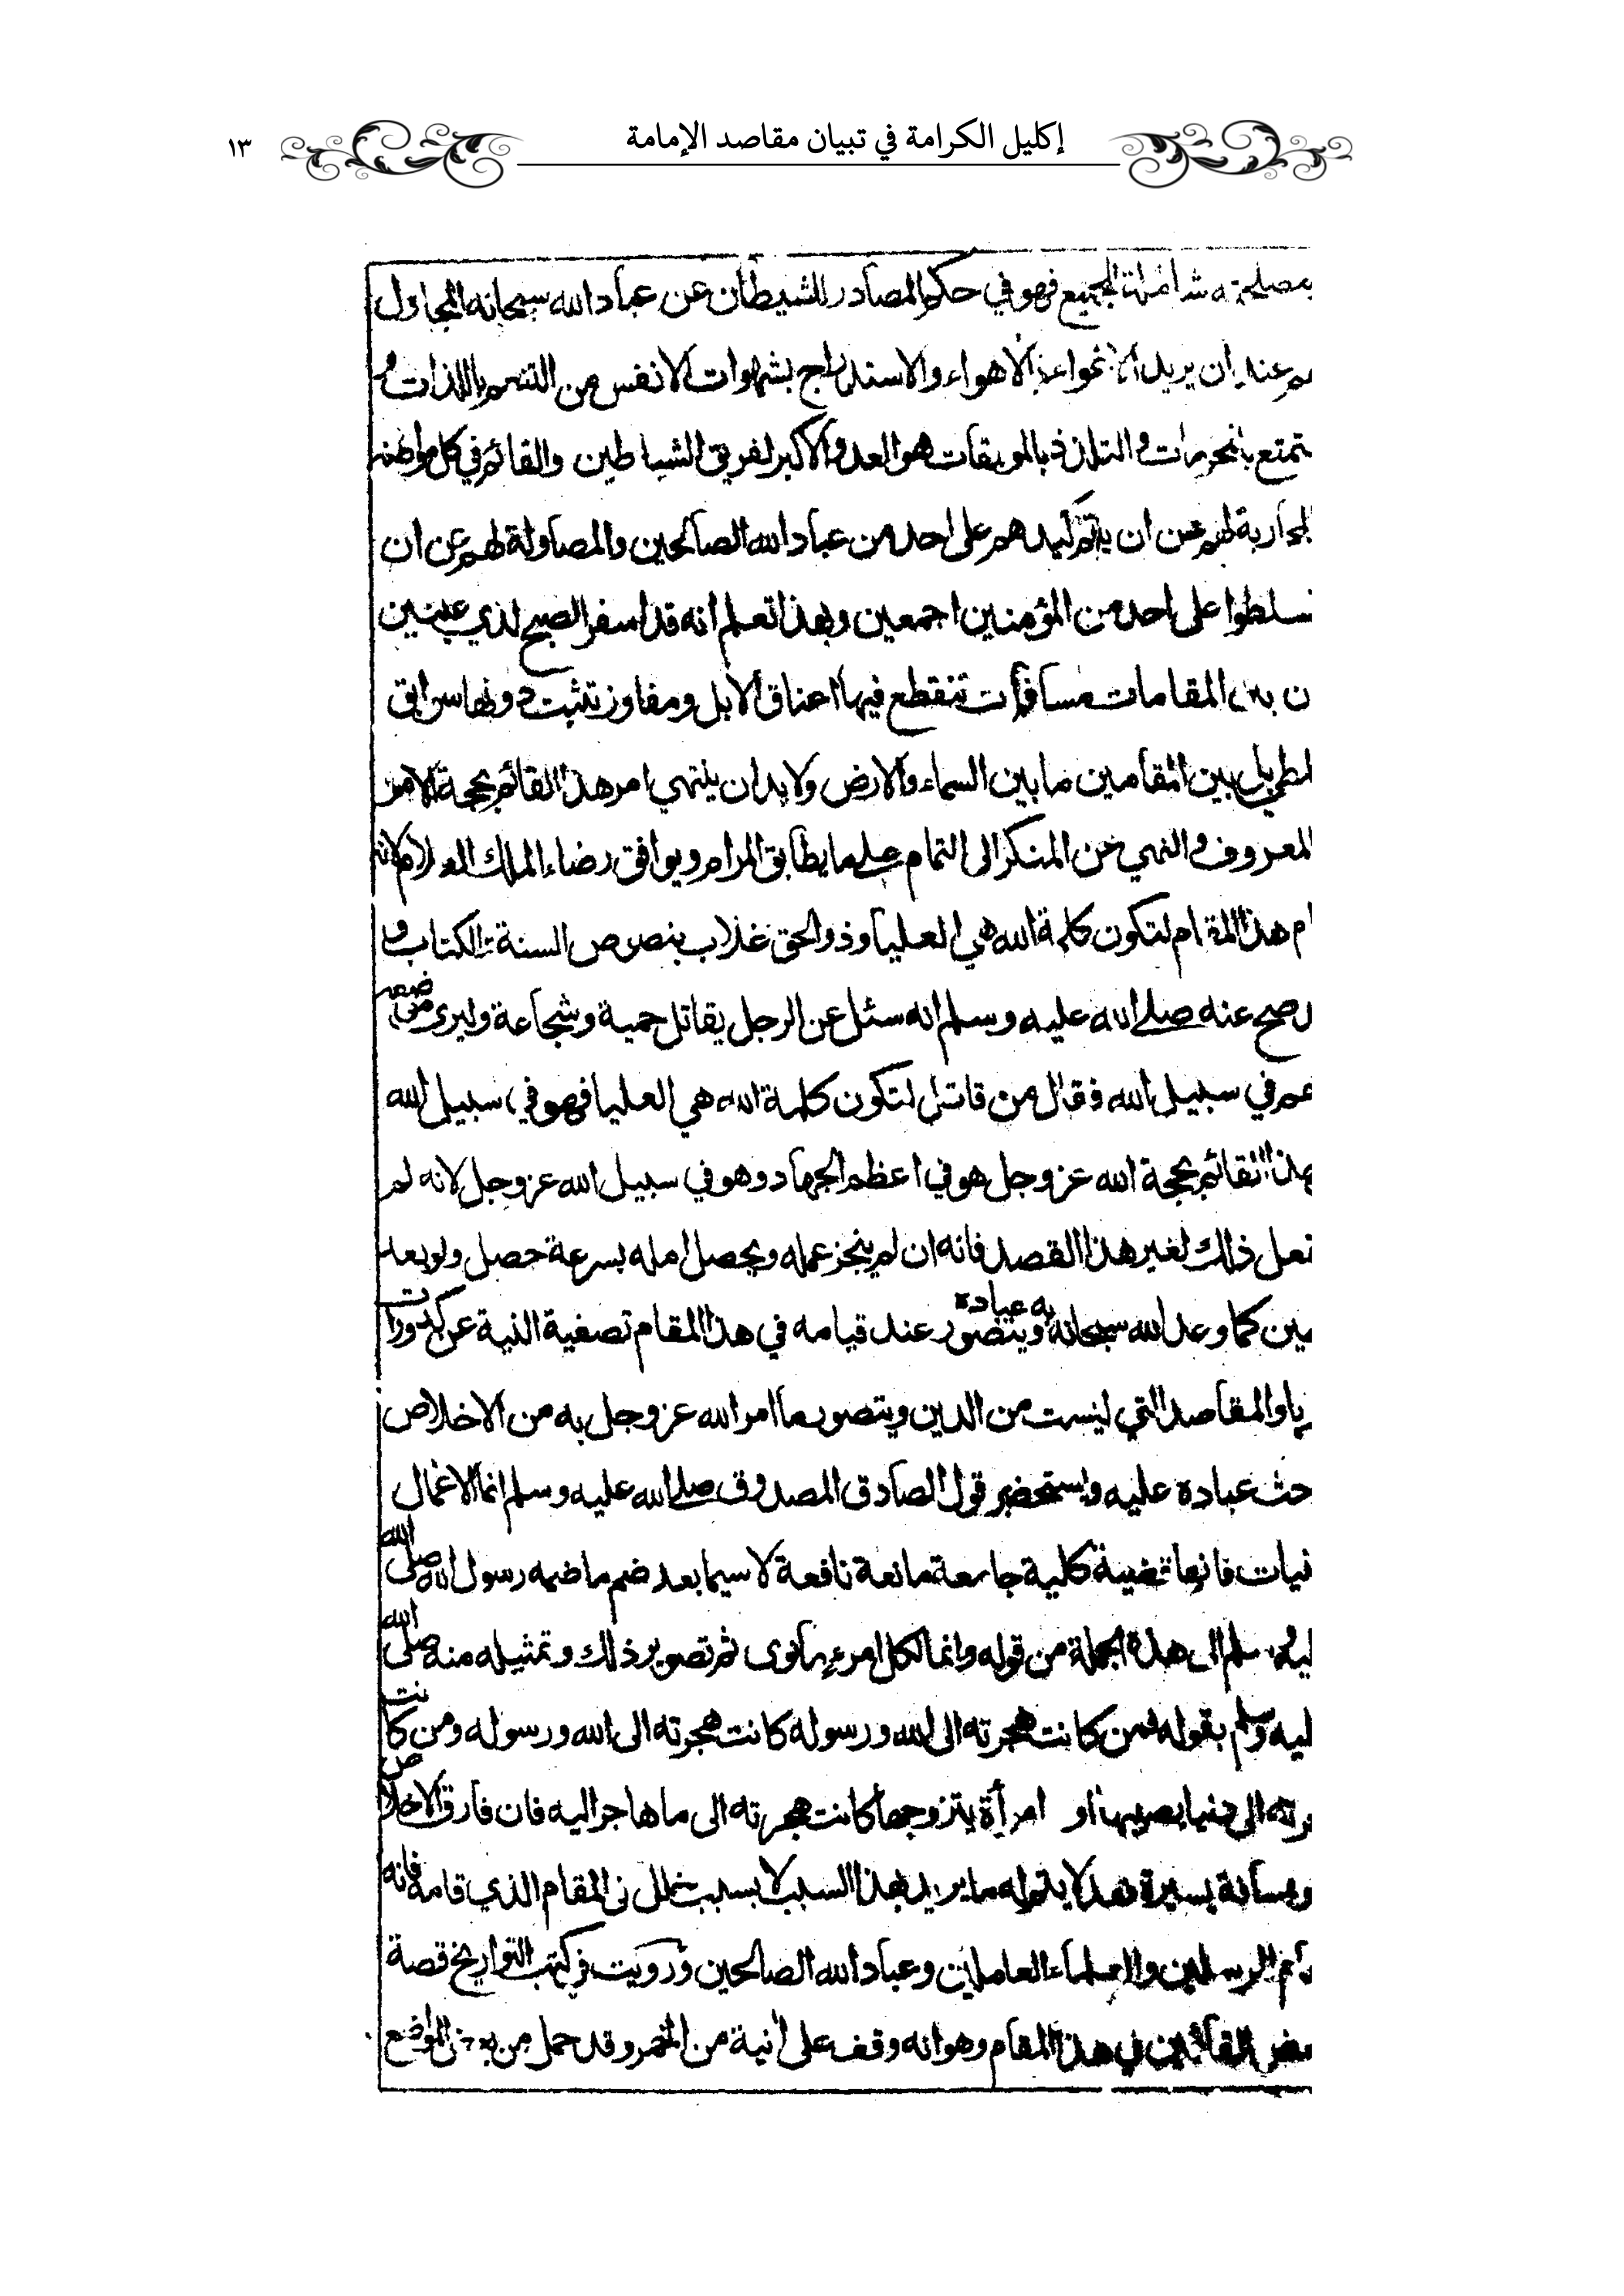 إكليل الكرامة في تبيان مقاصد الإمامة
١٣
مصلحته شاملة لجميع فهو في حكم المصادر للشيطان عن عباد الله سبحانه المجاول
عند ان يريد الاغواء والاستدراج بشهوات الانفس من التنعم باللذات و
تمتع بالمحرمات والتلذذ بالموبقات هو العدو الأكبر لفريق الشياطين والقائم في كل مواطنه
المحاربة لهم عن ان يتم كيدهم على احد من عباد الله الصالحين والمصاولة لهم عن ان
تسلطوا على احد من المؤمنين اجمعين وبهذا تعلم انه قد اسفر الصبح لذي عينين
ن بين المقامات مسافات تنقطع فيها اعناق الابل ومفاوز تثبت دونها
بين المقامين ما بين السماء والارض ولا بد ان ينتهي امر هذا القائم بحجة الامر
المعروف والنهي عن المنكر الى التمام على ما يطابق المرام ويوافق رضاء الملك العلام لانه
ام هذا المقام لتكون كلمة الله هي العليا وذو الحق غلاب بنصوص السنة والكتاب و
صح عنه صلى الله عليه وسلم انه سئل عن الرجل يقاتل حمية وشجاعة وليرى
في سبيل الله فقال من قاتل لتكون كلمة الله هي العليا فهو في سبيل الله
هذا القائم بحجة الله عز وجل هو في اعظم الجهاد وهو في سبيل الله عز وجل لانه لم
فعل ذلك لغير هذا القصد فانه ان لم ينجز عمله ويحصل امله بسرعة حصل ولو بعد
حين كما وعد الله سبحانه به عباده ويتصور عند قيامه في هذا المقام تصفية النية عن كدورات
والمقاصد التي ليست من الدين ويتصور ما امر الله عز وجل به من الاخلاص
حث عباده عليه ويستحضر قول الصادق المصدوق صلى الله عليه وسلم انما الاعمال
نيات فانها قضية كلية جامعة مانعة نافعة لا سيما بعد ضم ما ضمه رسول الله صلى الله
ليه وسلم الى هذه الجملة من قوله وانما لكل امرء ما نوى ثم تصوير ذلك وتمثيله منه صلى الله
ليه وسلم بقوله فمن كانت هجرته الى الله ورسوله كانت هجرته الى الله ورسوله ومن كانت
رته الى دنيا يصيبها او امرأة يتزوجها كانت هجرته الى ما هاجر اليه فان فارق الاخلاص
يسيرة فقد لا يتم له ما يريد بهذا السبب لا بسبب خلل في المقام الذي قامه فانه
المرسلين والعلماء العاملين وعباد الله الصالحين ورويت في كتب التواريخ قصة
بعض القائمين في هذا المقام وهو انه وقف على آنية من الخمر وقد حمل من بعض المواضع